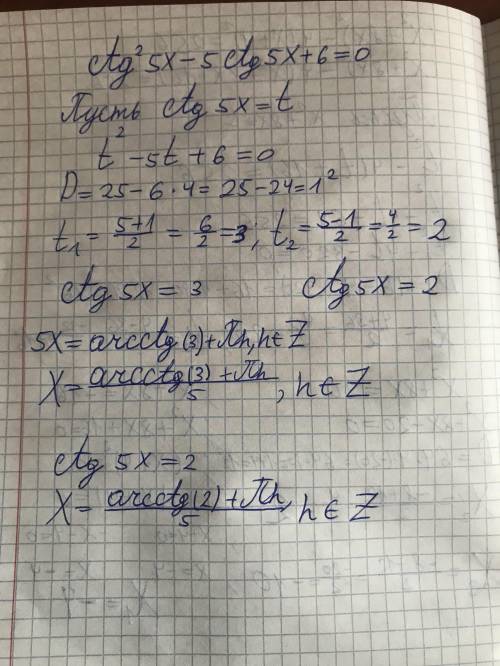 ctg² 5x - 5 ctg 5x + 6 = 0
Пусть ctg 5x = t
t² - 5t + 6 = 0
D = 25 - 6 · 4 = 25 - 24 = 1²
t₁ = (5+1)/2 = 6/2 = 3; t₂ = (5-1)/2 = 4/2 = 2
ctg 5x = 3 ctg 5x = 2
5x = arcctg (3) + πn, n ∈ Z
x = (arcctg (3) + πn)/5, n ∈ Z
ctg 5x = 2
x = (arcctg (2) + πn)/5, n ∈ Z